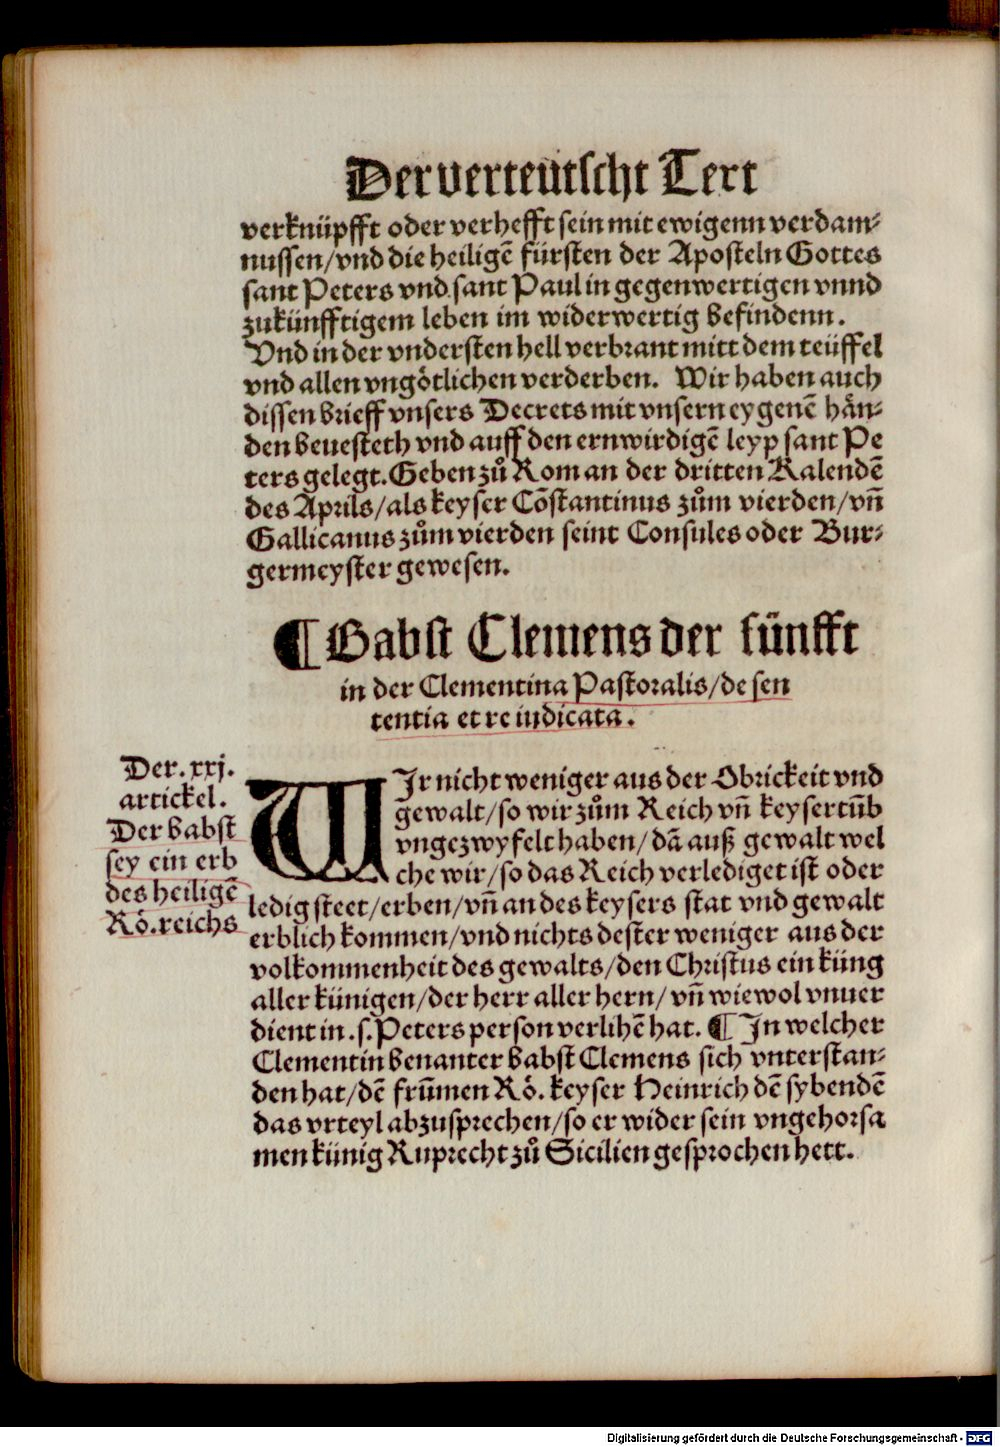 Der verteütscht Text
verknüpfft oder verhefft sein mit ewigenn verdam⸗
nussen/vnd die heiligē fürsten der Aposteln Gottes
sant Peters vnd sant Paul in gegenwertigen vnnd
zukünfftigem leben im widerwertig befindenn.
Vnd in der vndersten hell verbrant mitt dem teüffel
vnd allen vngötlichen verderben. Wir haben auch
dissen brieff vnsers Decrets mit vnsern eygenē hän⸗
den beuesteth vnd auff den ernwirdigē leyp sant Pe
ters gelegt. Geben zů Rom an der dritten Kalendē
des Aprils/als keyser Cōstantinus zům vierden/vn̄
Gallicanus zům vierden seint Consules oder Bur⸗
germeyster gewesen.
¶ Babst Clemens der fünfft
in der Clementina Pastoralis/de sen
tentia et re iudicata.
Der. xxj.
artickel.
Der babst
sey ein erb
des heiligē
Rö. reichs
WIr nicht weniger aus der Obrickeit vnd
gewalt/so wir zům Reich vn̄ keysertūb
vngezwyfelt haben/dā auß gewalt wel
che wir/so das Reich verlediget ist oder
ledig steet/erben/vn̄ an des keysers stat vnd gewalt
erblich kommen/vnd nichts dester weniger aus der
volkommenheit des gewalts/den Christus ein küng
aller künigen/der herr aller hern/vn̄ wiewol vnuer
dient in .s. Peters person verlihē hat. ¶ In welcher
Clementin benanter babst Clemens sich vnterstan⸗
den hat/dē frūmen Rö. keyser Heinrich dē sybendē
das vrteyl abzusprechen/so er wider sein vngehorsa
men künig Ruprecht zů Sicilien gesprochen hett.
Digitalisierung gefördert durch die Deutsche Forschungsgemeinschaft - DFG